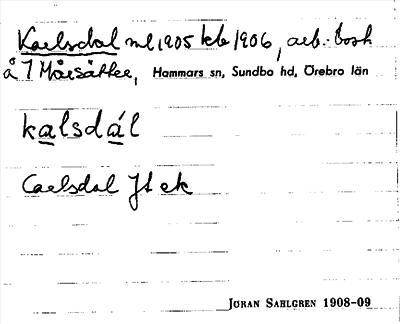 Karlsdal ml 1905 kb 1906, arb.-bost.
å 7 Mårsätter, Hammars sn, Sundbo hd, Örebro län
kalsdál
Carlsdal Jt ek
JÖRAN SAHLGREN 1908-09